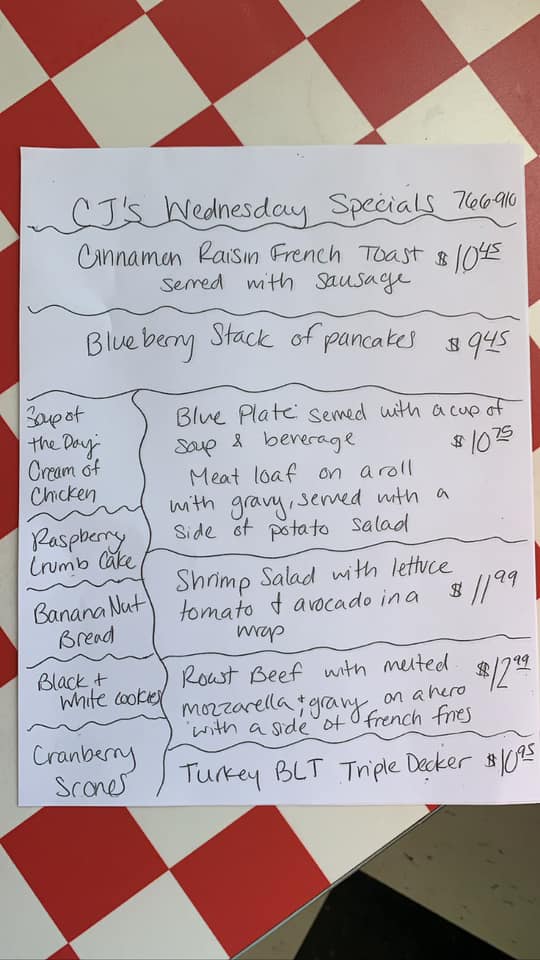 CJ's Wednesday Specials 766-9110
Cinnamon Raisin French Toast $10.45
served with sausage
Blueberry Stack of pancakes $9.45
Soup of
the Day:
Cream of
Chicken
Raspberry
Crumb Cake
Banana Nut
Bread
Black +
White cookies
Cranberry
Scones
Blue Plate: served with a cup of
soup & beverage $10.75
Meat loaf on a roll
with gravy, served with a
side of potato salad
Shrimp Salad with lettuce
tomato + avocado in a $11.99
wrap
Roast Beef with melted $12.99
mozzarella + gravy on a hero
with a side of french fries
Turkey BLT Triple Decker $10.95